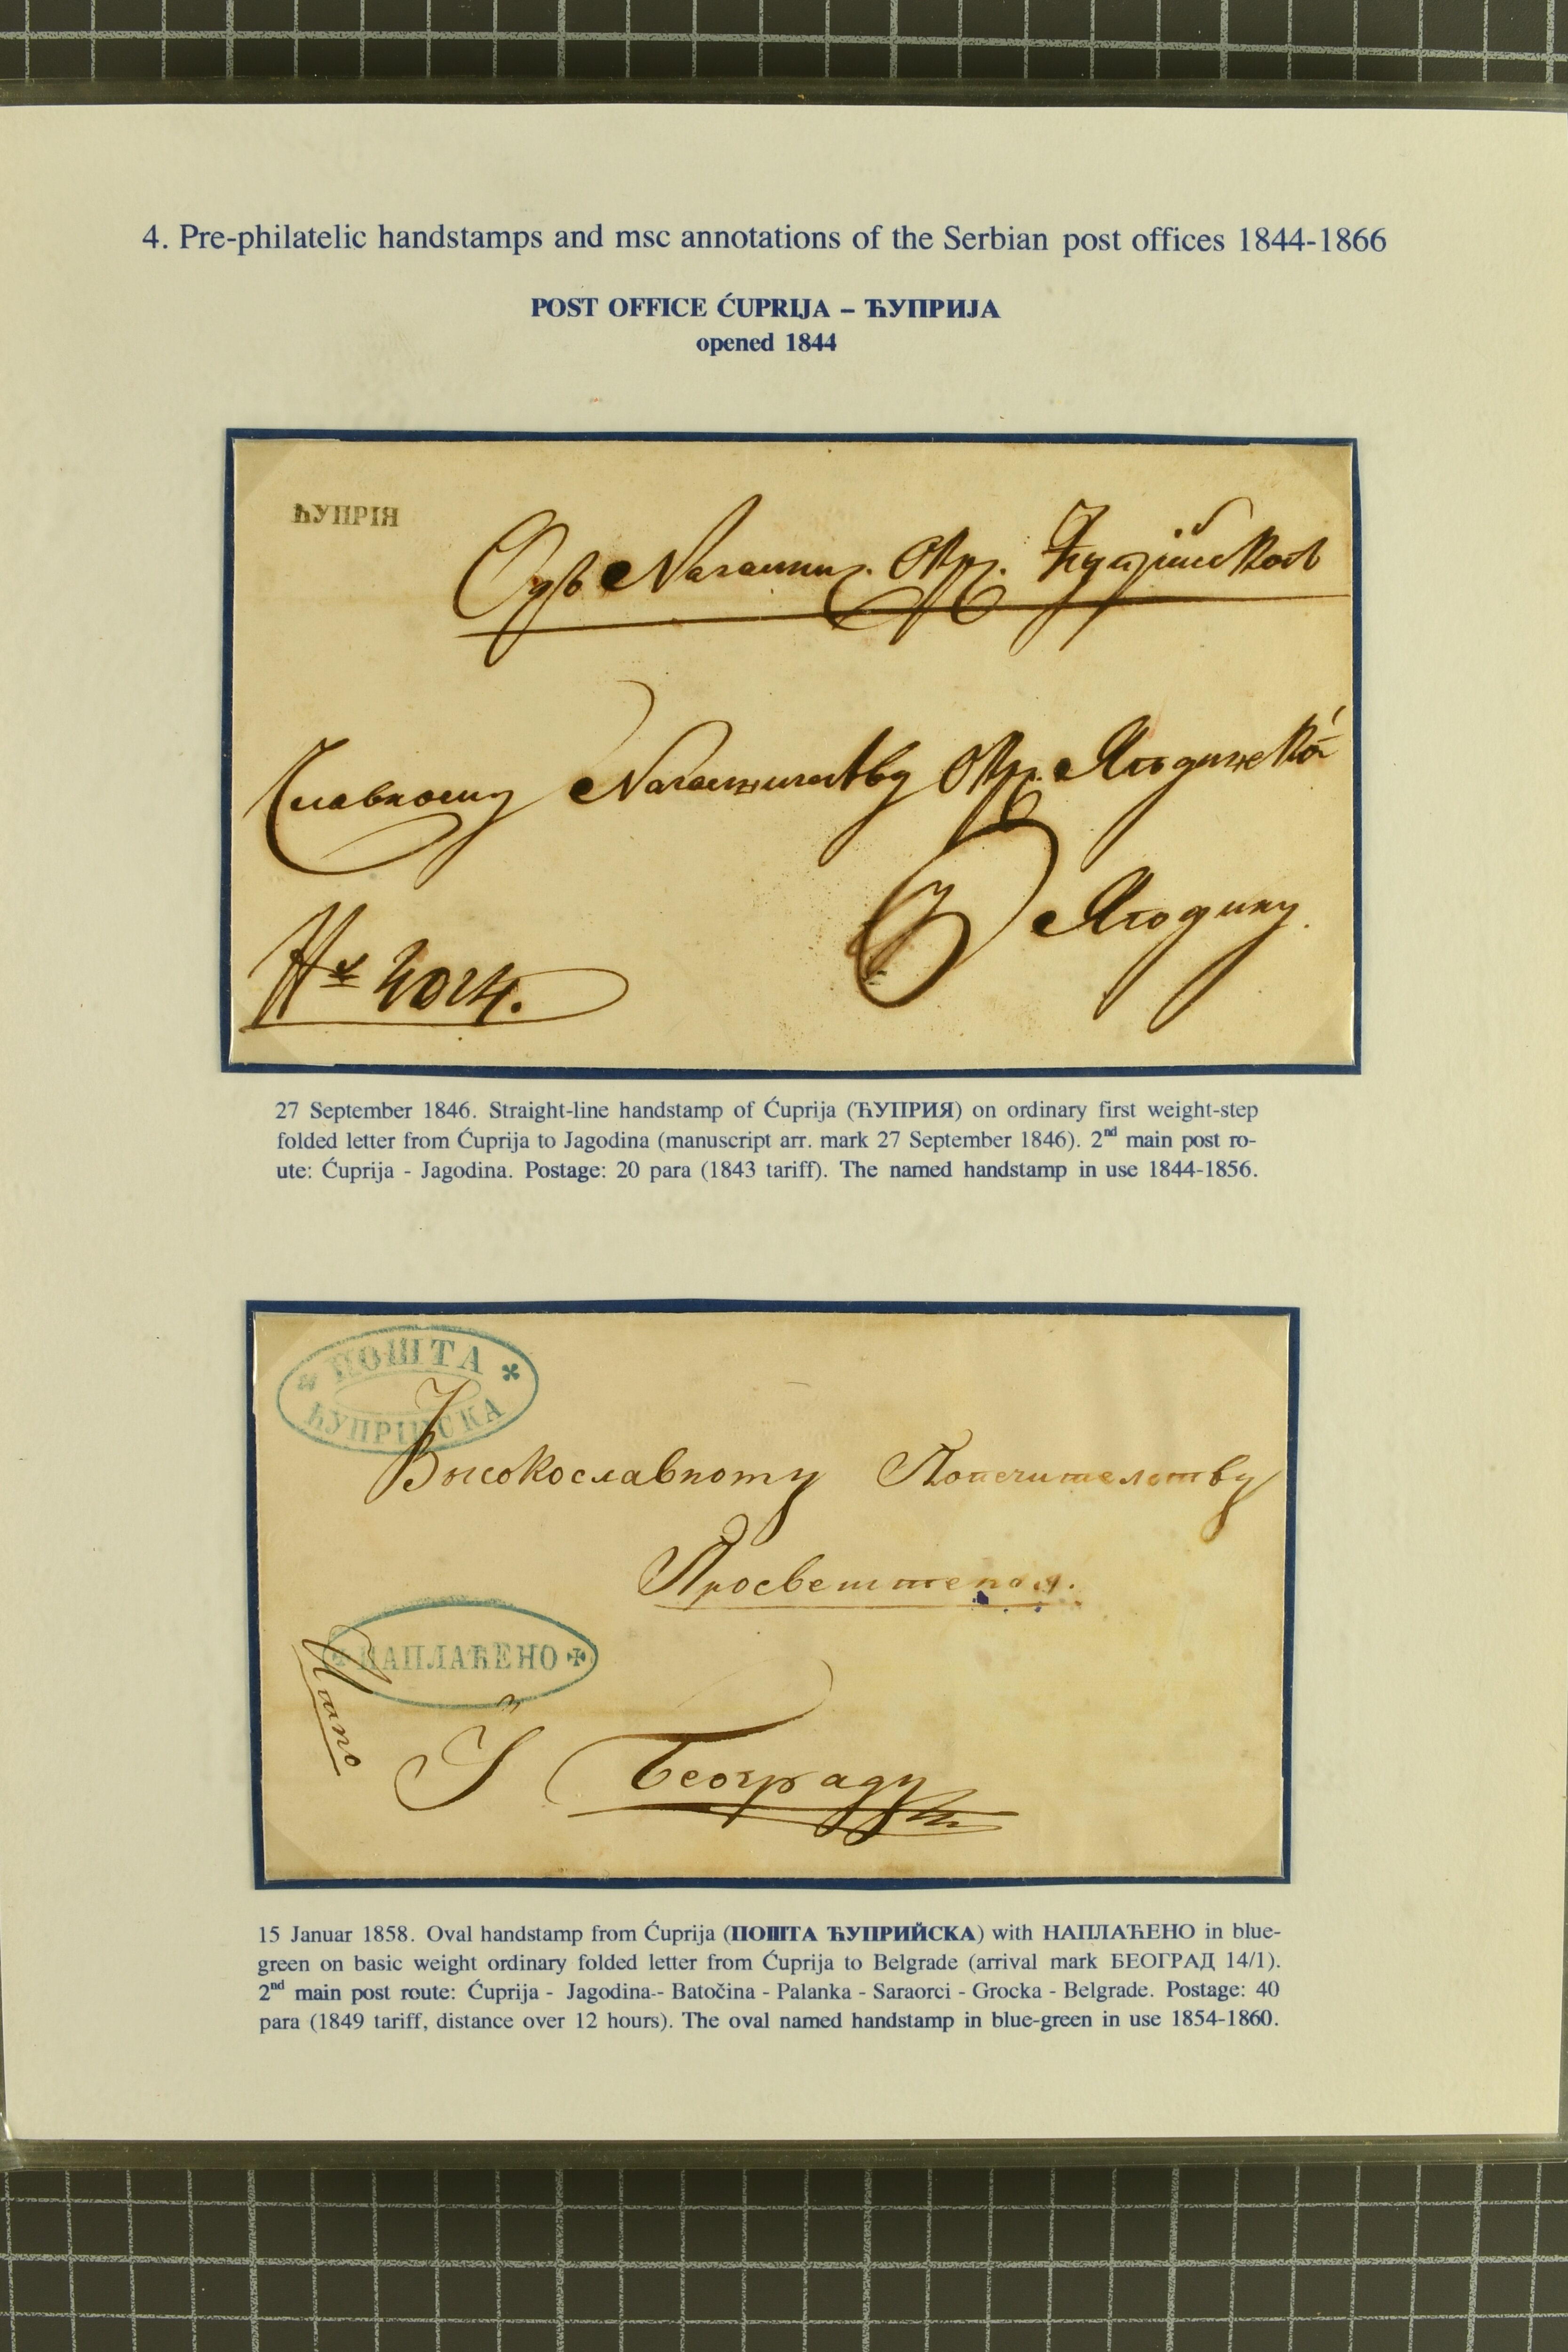 4. Pre-philatelic handstamps and msc annotations of the Serbian post offices 1844-1866
POST OFFICE ĆUPRIJA – ЋУПРИЈА
opened 1844
ЋУПРІЯ
Одъ Окр.
Славному Окр.
У Ягодину.
27 September 1846. Straight-line handstamp of Ćuprija (ЋУПРИЯ) on ordinary first weight-step
folded letter from Ćuprija to Jagodina (manuscript arr. mark 27 September 1846). 2nd main post ro-
ute: Ćuprija - Jagodina. Postage: 20 para (1843 tariff). The named handstamp in use 1844-1856.
ПОШТА
ЋУПРІЙСКА
Высокославному Попечителству
Просвештенія.
НАПЛАЋЕНО
У Београду
15 Januar 1858. Oval handstamp from Ćuprija (ПОШТА ЋУПРИЙСКА) with НАПЛАЋЕНО in blue-
green on basic weight ordinary folded letter from Ćuprija to Belgrade (arrival mark БЕОГРАД 14/1).
2nd main post route: Ćuprija - Jagodina-- Batočina - Palanka - Saraorci - Grocka - Belgrade. Postage: 40
para (1849 tariff, distance over 12 hours). The oval named handstamp in blue-green in use 1854-1860.